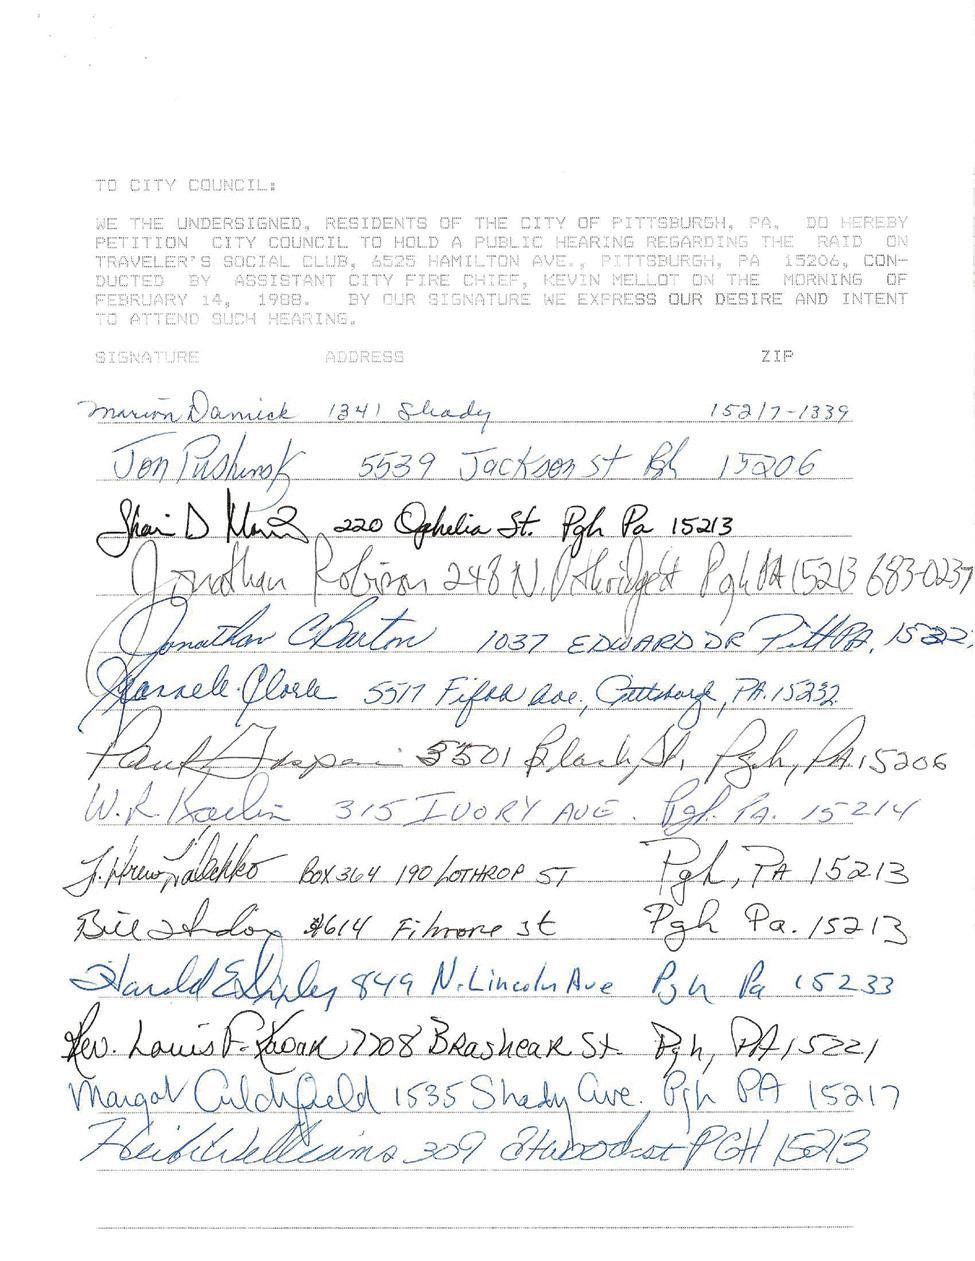 TO CITY COUNCIL:
WE THE UNDERSIGNED, RESIDENTS OF THE CITY OF PITTSBURGH, PA, DO HEREBY
PETITION CITY COUNCIL TO HOLD A PUBLIC HEARING REGARDING THE RAID ON
TRAVELER'S SOCIAL CLUB, 6525 HAMILTON AVE., PITTSBURGH, PA 15206, CON-
DUCTED BY ASSISTANT CITY FIRE CHIEF, KEVIN MELLOT ON THE MORNING OF
FEBRUARY 14, 1988. BY OUR SIGNATURE WE EXPRESS OUR DESIRE AND INTENT
TO ATTEND SUCH HEARING.
SIGNATURE ADDRESS ZIP
Marion Damick 1341 Shady 15217-1339
Jon Pushinsk 5539 Jackson St Pgh 15206
D 220 Ophelia St. Pgh Pa 15213
Jonathan Robison 248 N. Pgh PA 15213 683-0237
Jonathan C Barton 1037 EDWARD DR Pitt PA,
Clark 5517 Fifth Ave., Pittsburgh, PA. 15232
Paul 5501 Black St, Pgh, PA. 15206
W.R. 315 IVORY AVE. Pgh. PA. 15214
BOX 364 190 LOTHROP ST Pgh, PA 15213
Bill #614 Filmore St Pgh Pa. 15213
Harold E 849 N. Lincoln Ave Pgh Pa 15233
Rev. Louis F. 7708 BRASHEAR St. Pgh, PA, 15221
Margot 1535 Shady Ave. Pgh PA 15217
Heidi Williams 309 Atwood st PGH 15213